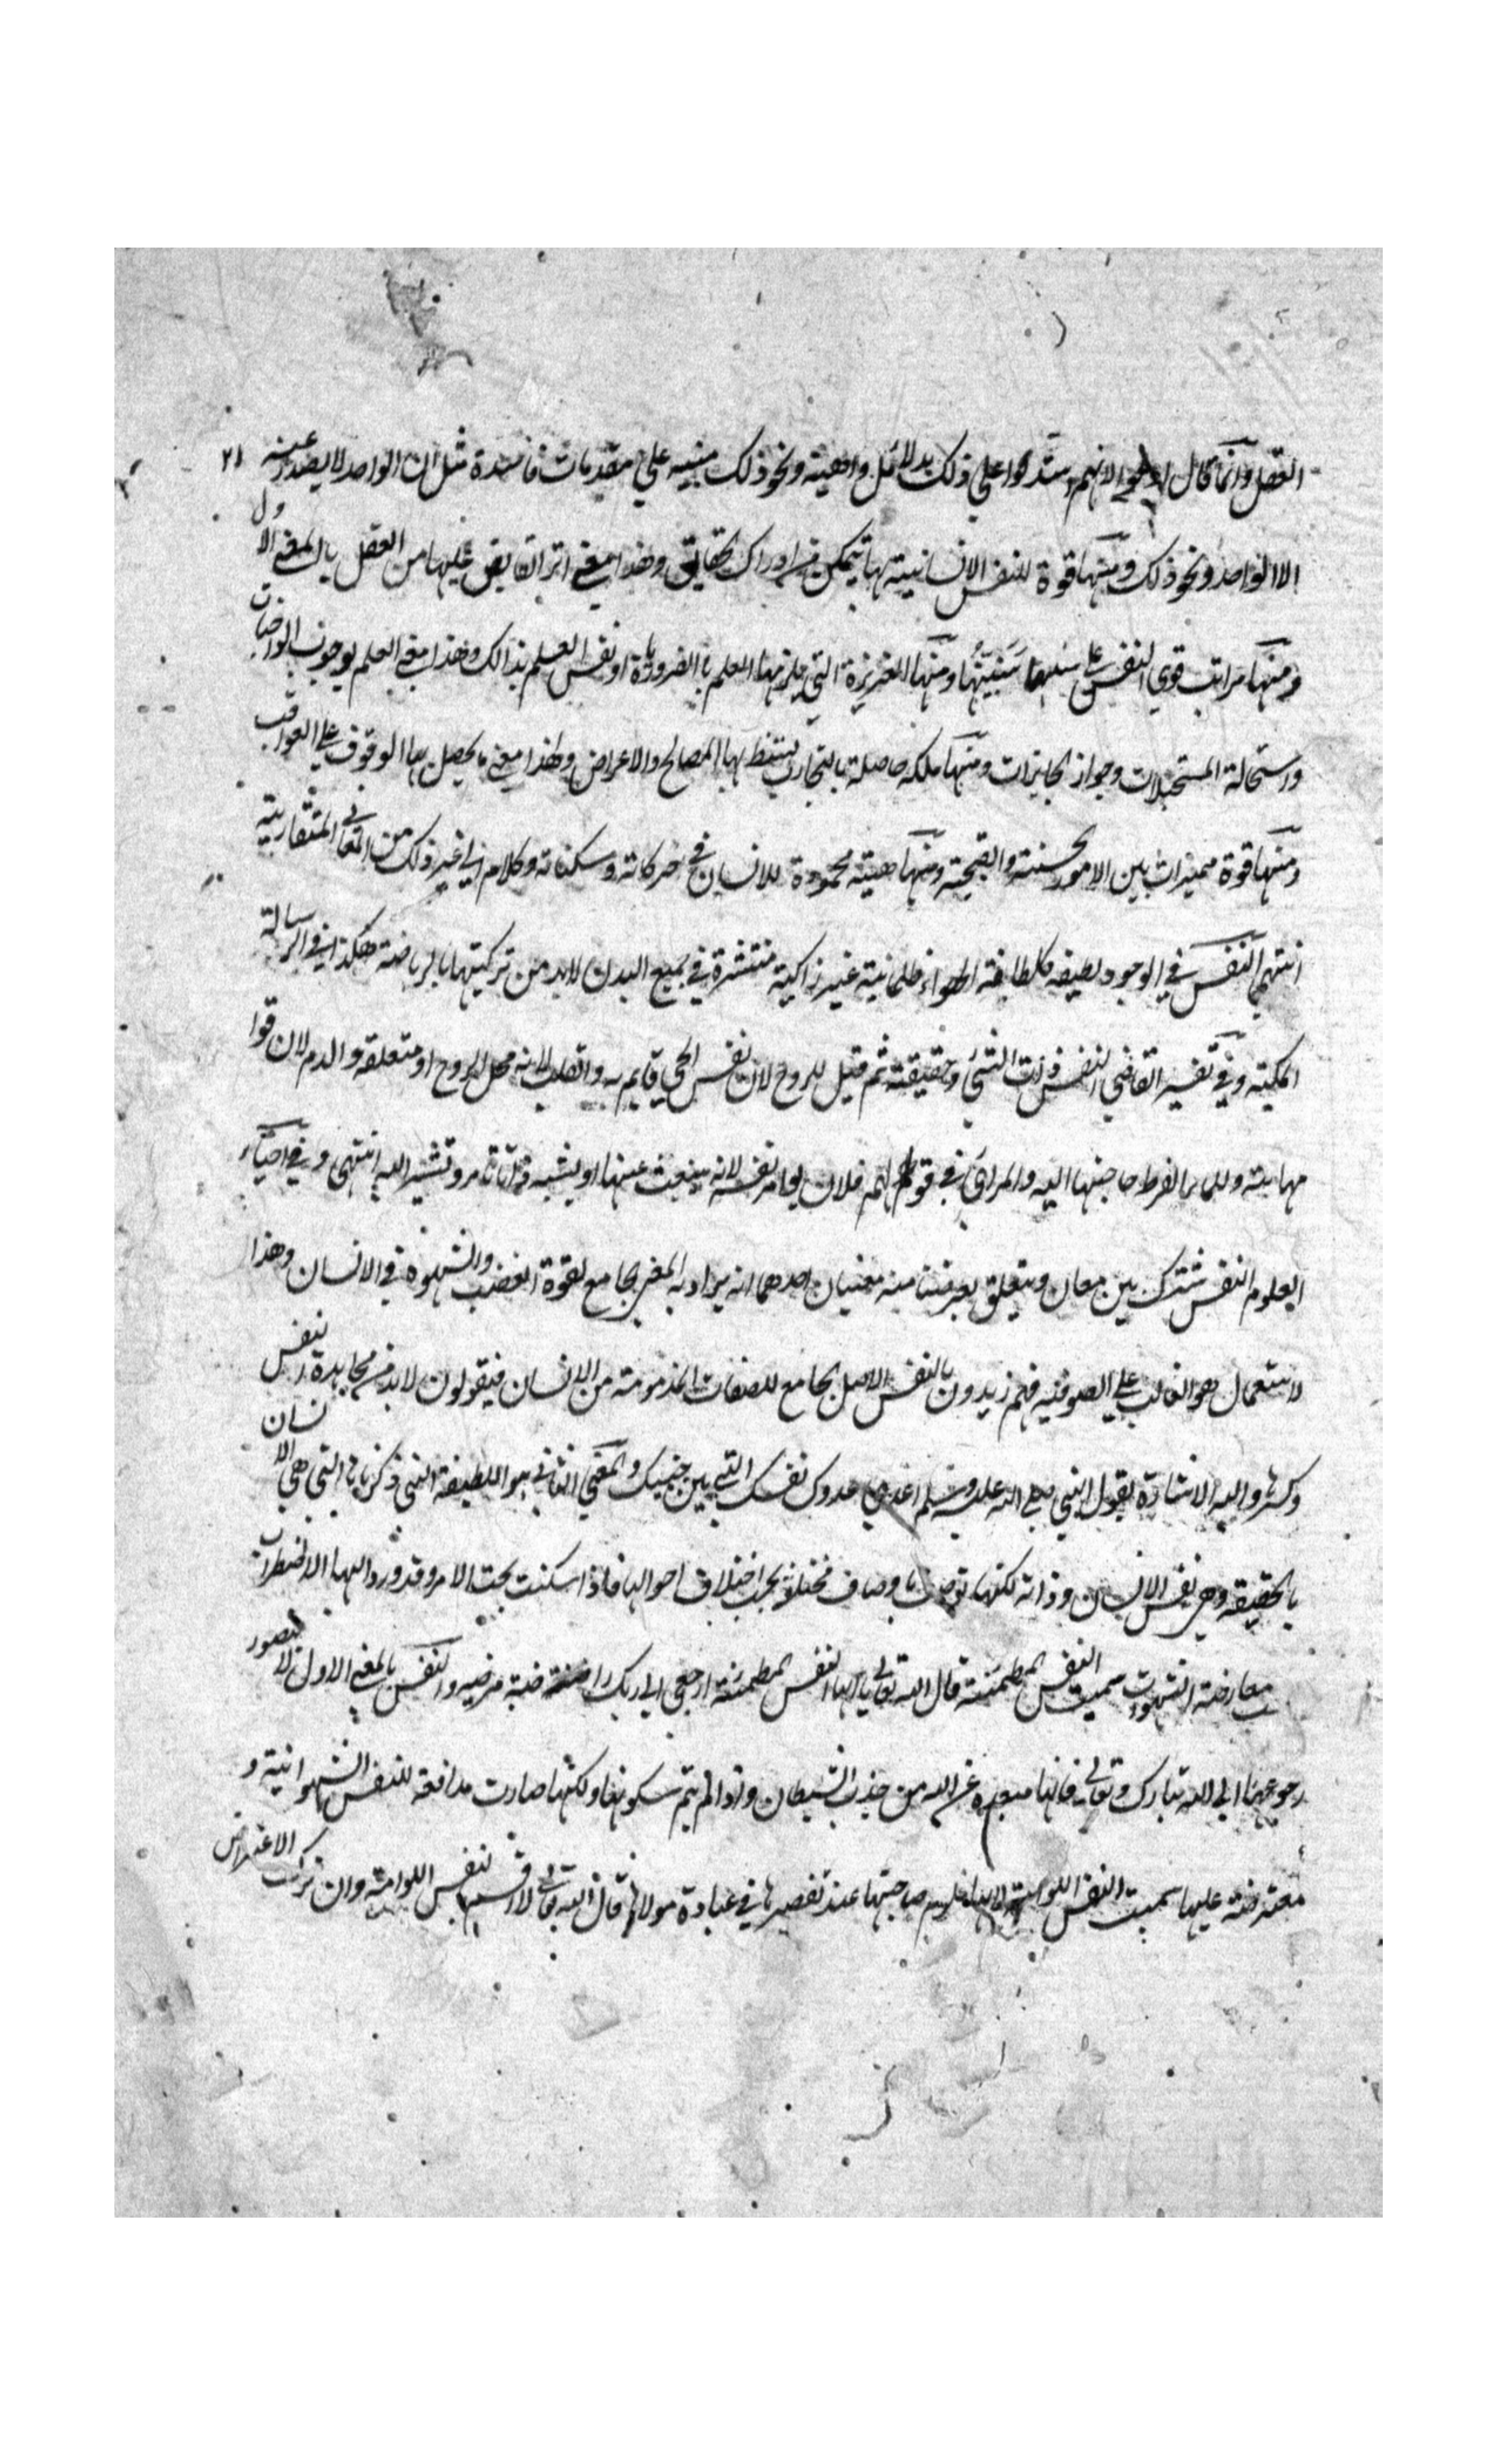 العقل وانما قال ادعوا لانهم استدلوا علي ذلك بدلائل واهية ونحو ذلك مبنية علي مقدمات فاسدة مثل ان الواحد لا يصدر عنه ٢١
الا الواحد ونحو ذلك ومنها قوة للنفس الانسانية بها يتمكن من ادراك الحقايق وهذا معني اثر الفايض عليها من العقل بالمعني الاول
ومنها مراتب قوي النفس علي ومنها الغريزة التي يلزمها العلم بالضروريات او نفس العلم بذالك وهذا معني العلم بوجوب الواجبات
واستحالة المستحيلات وجواز الجايزات ومنها ملكه حاصلة بالتجارب يستنبط بها المصالح والاعراض وهذا معني ما يحصل بها الوقوف علي العواقب
ومنها قوة مميزات بين الامور الحسنة والقبيحة ومنها هيئة محمودة للانسان في حركاته وسكناته وكلامه الي غير ذلك من المعاني المتقاربة
انتهي النفس في الوجود لطيفه كلطافة الهواء ظلمانية غير زاكية منتشرة في جميع البدن لابد من تزكيتها بالرياضة هكذا في الرسالة
المكية وفي تفسير القاضي النفس ذات الشئ وحقيقته ثم قيل للروح لان نفس الحي قايم به والقلب لانه محل الروح او متعلقه والدم لان قوا
مها به وللماء لفرط حاجتها اليه والمراي في قولهم فلان يوامر نفسه لانه ينبعث عنها او يشبه ذاتا تامره وتشير اليه انتهي وفي احياء
العلوم النفس مشترك بين معان ويتعلق بغرضنا منه معنيان احدهما انه يراد به المعني الجامع لقوة الغضب والشهوة في الانسان وهذا
لاستعمال هو الغالب علي الصوفية فهم يريدون بالنفس الاصل الجامع للصفات المذمومة من الانسان فيقولون لابد من مجاهدة النفس
وكسرها واليه الاشارة بقول النبي صلي الله عليه وسلم اعدي عدوك نفسك التي بين جنبيك والمعني الثاني هو اللطيفة التي ذكرناها التي هي الانسان
بالحقيقه وهي نفس الانسان وذاته لكنها توصف باوصاف مختلفة بحسب اختلاف احوالها فاذا سكنت تحت الامر الاضطراب
معارضة الشهوات سميت النفس المطمئنة قال الله تعالي يا ايها النفس المطمئنة ارجعي الي ربك راضية مرضيه والنفس بالمعني الاول لا يتصور
رجوعها الي الله تبارك وتعالي فانها مبعدة عن الله من حزب الشيطان واذا لم يتم سكونها ولكنها صارت مدافعة للنفس الشهوانية و
معترضة عليها سميت النفس اللوامة لانها تلوم صاحبها عند تقصيرها في عبادة مولاها قال الله تعالي لا اقسم بالنفس اللوامة وان تركت الاعتراض